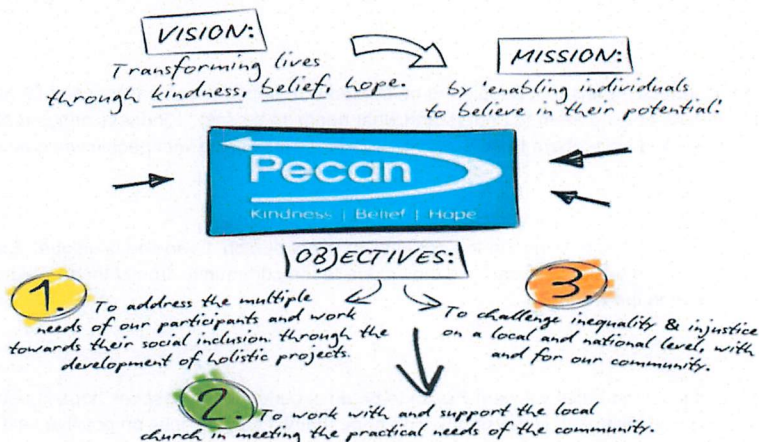 VISION:
Transforming lives
through kindness, belief, hope.
MISSION:
by 'enabling individuals
to believe in their potential.'
Pecan
Kindness | Belief | Hope
OBJECTIVES:
1. To address the multiple
needs of our participants and work
towards their social inclusion through the
development of holistic projects.
2. To work with and support the local
church in meeting the practical needs of the community.
3. To challenge inequality & injustice
on a local and national level, with
and for our community.